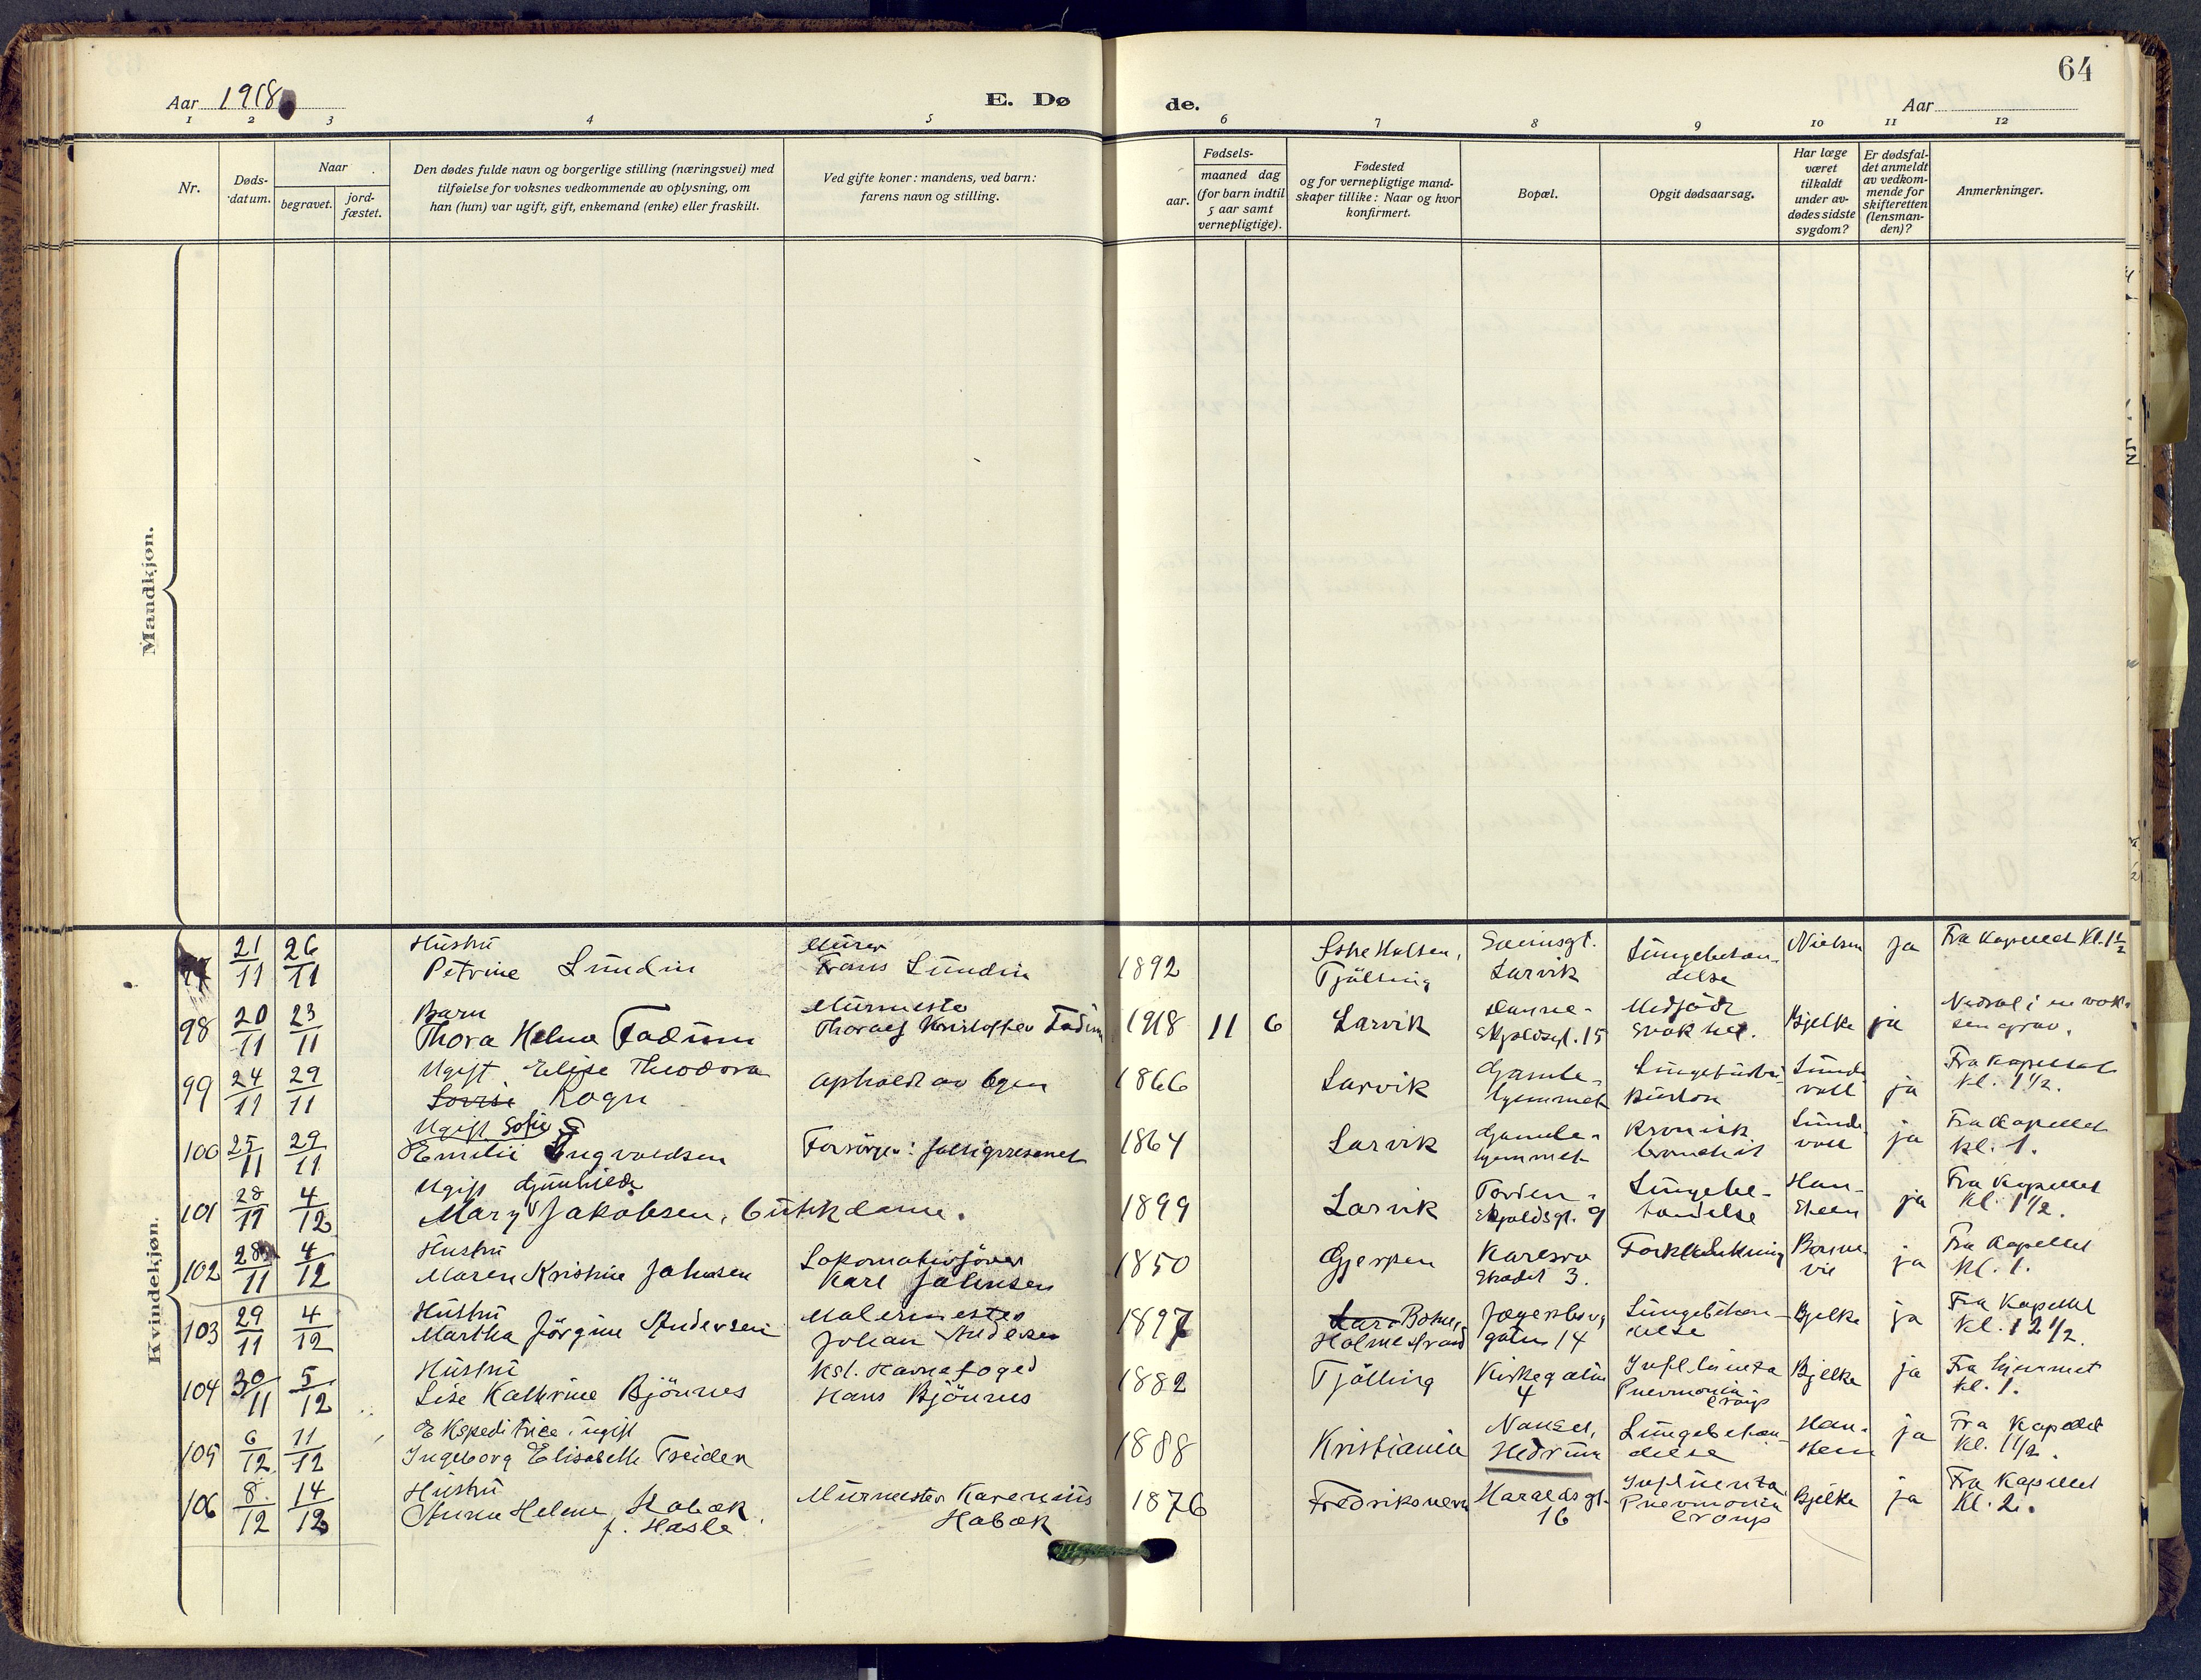 64
Aar 1918
E. Dø
de.
Aar
1 2 3 4 5 6 7 8 9 10 11 12
Nr.
Døds-
datum.
Naar
begravet.
jord-
fæstet.
Den dødes fulde navn og borgerlige stilling (næringsvei) med
tilføielse for voksnes vedkommende av oplysning, om
han (hun) var ugift, gift, enkemand (enke) eller fraskilt.
Ved gifte koner: mandens, ved barn:
farens navn og stilling.
Fødsels-
aar.
maaned dag
(for barn indtil
5 aar samt
vernepligtige).
Fødested
og for vernepligtige mand-
skaper tillike: Naar og hvor
konfirmert.
Bopæl.
Opgit dødsaarsag.
Har læge
været
tilkaldt
under av-
dødes sidste
sygdom?
Er dødsfal-
det anmeldt
av vedkom-
mende for
skifteretten
(lensman-
den)?
Anmerkninger.
Mandkjøn.
Kvindekjøn.
21/11 26/11 Hustru Murer Larvik Nielsen ja Fra Kapellet Kl. 1½
Petrine Lundin Frans Lundin 1892 Tjølling
98 20/11 23/11 Barn Murmester
Thora Helene Fadum Thoralf Kristoffer Fadum 1918 11 6 Larvik Skjoldsgt. 15 Medfødt svakhet. Bjelke ja
99 24/11 29/11 Ugift Elise Theodora
Lovise Rogn 1866 Larvik Gamle- hjemmet ja Fra Kapellet Kl. 1½.
100 25/11 29/11 Ugift Sofie
Emilie Ingvaldsen 1864 Larvik Gamle- hjemmet Kronisk bronchit ja Fra Kapellet kl. 1.
101 28/11 4/12 Ugift Gunhilde
Mary Jakobsen, butikdame. 1899 Larvik Torden- skjoldsgt. 9 Lungebe- tændelse Han- steen ja Fra Kapellet Kl. 1½.
102 28/11 4/12 Hustru Lokomotivfører
Maren Kristine Johnsen Karl Johnsen 1850 Gjerpen Karlsro Stredet 3. Forkalkning Bonne- vie ja Fra Kapellet Kl. 1.
103 29/11 4/12 Hustru Malermester
Martha Jørgine Andersen Johan Andersen 1897 Holmestrand Jegersborg gaten 14 Lungebetæn- delse Bjelke ja Fra Kapellet Kl. 12½.
104 30/11 5/12 Hustru Kst. Havnefoged
Lise Kathrine Bjönnes Hans Bjönnes 1882 Tjølling Kirkegaten 4 Influenza Pneumonia croup Bjelke ja Fra hjemmet kl. 1.
105 6/12 11/12 Ekspeditrice, ugift
Ingeborg Elisabeth Treiden 1888 Kristiania Nanset, Hedrum Lungebetæn- delse Han- steen ja Fra Kapellet Kl. 1½.
106 8/12 14/12 Hustru Murmester Karenius
Anna Helene Habæk f. Hasle Habæk 1876 Fredriksvern Haraldsgt. 16 Influenza Pneumonia croup Bjelke ja Fra Kapellet Kl. 2.